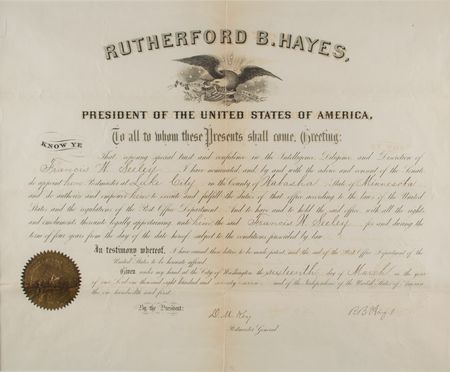 RUTHERFORD B. HAYES,
PRESIDENT OF THE UNITED STATES OF AMERICA,
To all to whom these Presents shall come, Greeting:
KNOW YE
That, reposing special trust and confidence in the Intelligence, Diligence, and Discretion of
Francis W. Seeley I have nominated, and by and with the advice and consent of the Senate,
do appoint him Postmaster at Lake City, in the County of Wabasha, State of Minnesota
and do authorize and empower him to execute and fulfill the duties of that office according to the laws of the United
States and the regulations of the Post Office Department: And to have and to hold the said office, with all the rights
and emoluments thereunto legally appertaining unto him the said Francis W. Seeley for and during the
term of four years from the day of the date hereof, subject to the conditions prescribed by law.
In testimony whereof, I have caused these letters to be made patent, and the seal of the Post Office Department of the
United States to be hereunto affixed.
Given under my hand at the City of Washington the sixteenth day of March in the year
of our Lord one thousand eight hundred and seventy seven, and of the Independence of the United States of America
the one hundredth and first.
By the President:
D. M. Key
Postmaster General.
R B Hayes